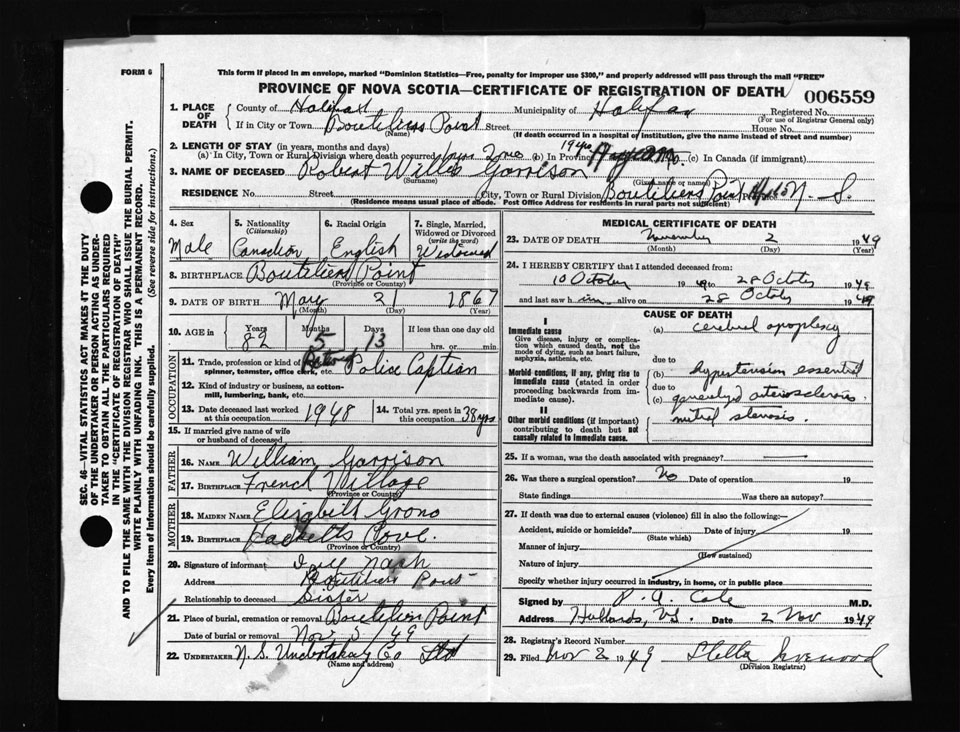 FORM 6
This form if placed in an envelope, marked "Dominion Statistics—Free, penalty for improper use $300," and properly addressed will pass through the mail "FREE"
PROVINCE OF NOVA SCOTIA—CERTIFICATE OF REGISTRATION OF DEATH
006559
1. PLACE OF DEATH
County of Halifax Municipality of Halifax Registered No.
(For use of Registrar General only)
If in City or Town Boutiliers Point Street House No.
(Name) (If death occurred in a hospital of institution, give the name instead of street and number)
2. LENGTH OF STAY (in years, months and days)
(a) In City, Town or Rural Division where death occurred (b) In Province (c) In Canada (if immigrant)
3. NAME OF DECEASED Robert Garrison
(Surname) (Given name or names)
RESIDENCE No. Street City, Town or Rural Division Boutiliers Point N. S.
(Residence means usual place of abode. Post Office Address for residents in rural parts not sufficient)
4. Sex Male
5. Nationality (Citizenship) Canadian
6. Racial Origin English
7. Single, Married, Widowed or Divorced (write the word) Widowed
8. BIRTHPLACE Boutiliers Point
(Province or Country)
9. DATE OF BIRTH May 21 1867
(Month) (Day) (Year)
10. AGE in Years 82 Months 5 Days 13 If less than one day old hrs. or min.
OCCUPATION
11. Trade, profession or kind of work as spinner, teamster, office clerk, etc. Police Captian
12. Kind of industry or business, as cotton-mill, lumbering, bank, etc.
13. Date deceased last worked at this occupation 1948
14. Total yrs. spent in this occupation 38 yrs
15. If married give name of wife or husband of deceased
FATHER
16. NAME William Garrison
17. BIRTHPLACE French Village
(Province or Country)
MOTHER
18. MAIDEN NAME Elizabeth Grono
19. BIRTHPLACE Hacketts Cove.
(Province or Country)
20. Signature of informant Nash
Address Boutiliers Point
Relationship to deceased Sister
21. Place of burial, cremation or removal Boutiliers Point
Date of burial or removal Nov 5 / 49
22. UNDERTAKER N. S. Undertaking Co Ltd
(Name and address)
MEDICAL CERTIFICATE OF DEATH
23. DATE OF DEATH November 2 1949
(Month) (Day) (Year)
24. I HEREBY CERTIFY that I attended deceased from:
10 October 1949 to 28 October 1949
and last saw him alive on 28 October 1949
CAUSE OF DEATH
I
Immediate cause
Give disease, injury or complication which caused death, not the mode of dying, such as heart failure, asphyxia, asthenia, etc.
(a) cerebral apoplexy
due to
Morbid conditions, if any, giving rise to immediate cause (stated in order proceeding backwards from immediate cause).
(b) hypertension essential
due to
(c) generalyed arteriosclerosis
II
Other morbid conditions (if important) contributing to death but not causally related to immediate cause.
mitral stenosis
25. If a woman, was the death associated with pregnancy?
26. Was there a surgical operation? No Date of operation 19
State findings Was there an autopsy?
27. If death was due to external causes (violence) fill in also the following:—
Accident, suicide or homicide? Date of injury 19
(State which)
Manner of injury
(How sustained)
Nature of injury
Specify whether injury occurred in industry, in home, or in public place
Signed by Cole M.D.
Address Hubbards, NS. Date 2 Nov 1949
28. Registrar's Record Number
29. Filed Nov 2 1949 Stella
(Division Registrar)
SEC. 46—VITAL STATISTICS ACT MAKES IT THE DUTY
OF THE UNDERTAKER OR PERSON ACTING AS UNDER-
TAKER TO OBTAIN ALL THE PARTICULARS REQUIRED
IN THE "CERTIFICATE OF REGISTRATION OF DEATH"
AND TO FILE THE SAME WITH THE DIVISION REGISTRAR WHO SHALL ISSUE THE BURIAL PERMIT.
WRITE PLAINLY WITH UNFADING INK. THIS IS A PERMANENT RECORD.
Every item of information should be carefully supplied. (See reverse side for instructions.)